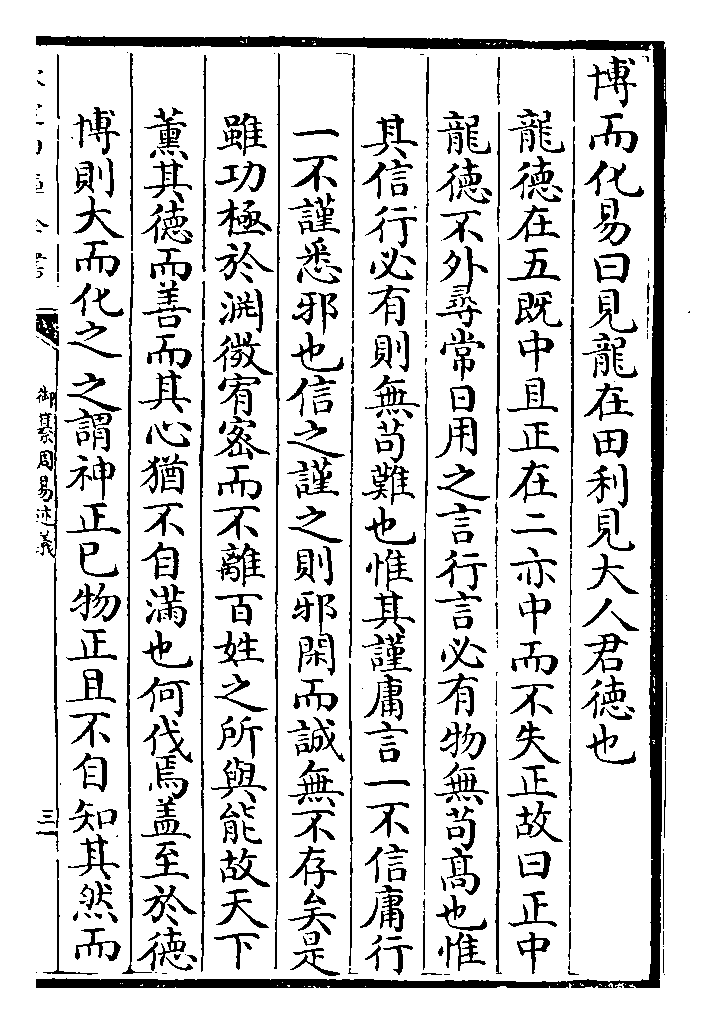 博而化易曰見龍在田利見大人君德也
龍德在五既中且正在二亦中而不失正故曰正中
龍德不外尋常日用之言行言必有物無苟高也惟
其信行必有則無苟難也惟其謹庸言一不信庸行
一不謹悉邪也信之謹之則邪閑而誠無不存矣是
雖功極於淵微宥密而不離百姓之所與能故天下
薰其德而善而其心猶不自滿也何伐焉盖至於德
博則大而化之之謂神正已物正且不自知其然而
御纂周易述義
三